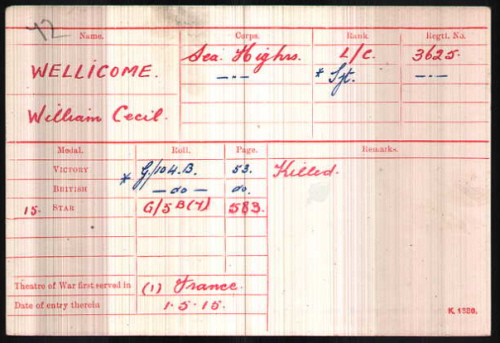 42
Name. Corps. Rank Regtl. No.
WELLICOME. Sea. Highrs. L/C. 3625.
—"— * Sjt. —"—
William Cecil.
Medal. Roll. Page. Remarks.
VICTORY * G/104.B. 53. Killed.
BRITISH — do — do.
15. STAR G/5B(4) 583.
Theatre of War first served in (1) France.
Date of entry therein 1.5.15.
K. 1380.